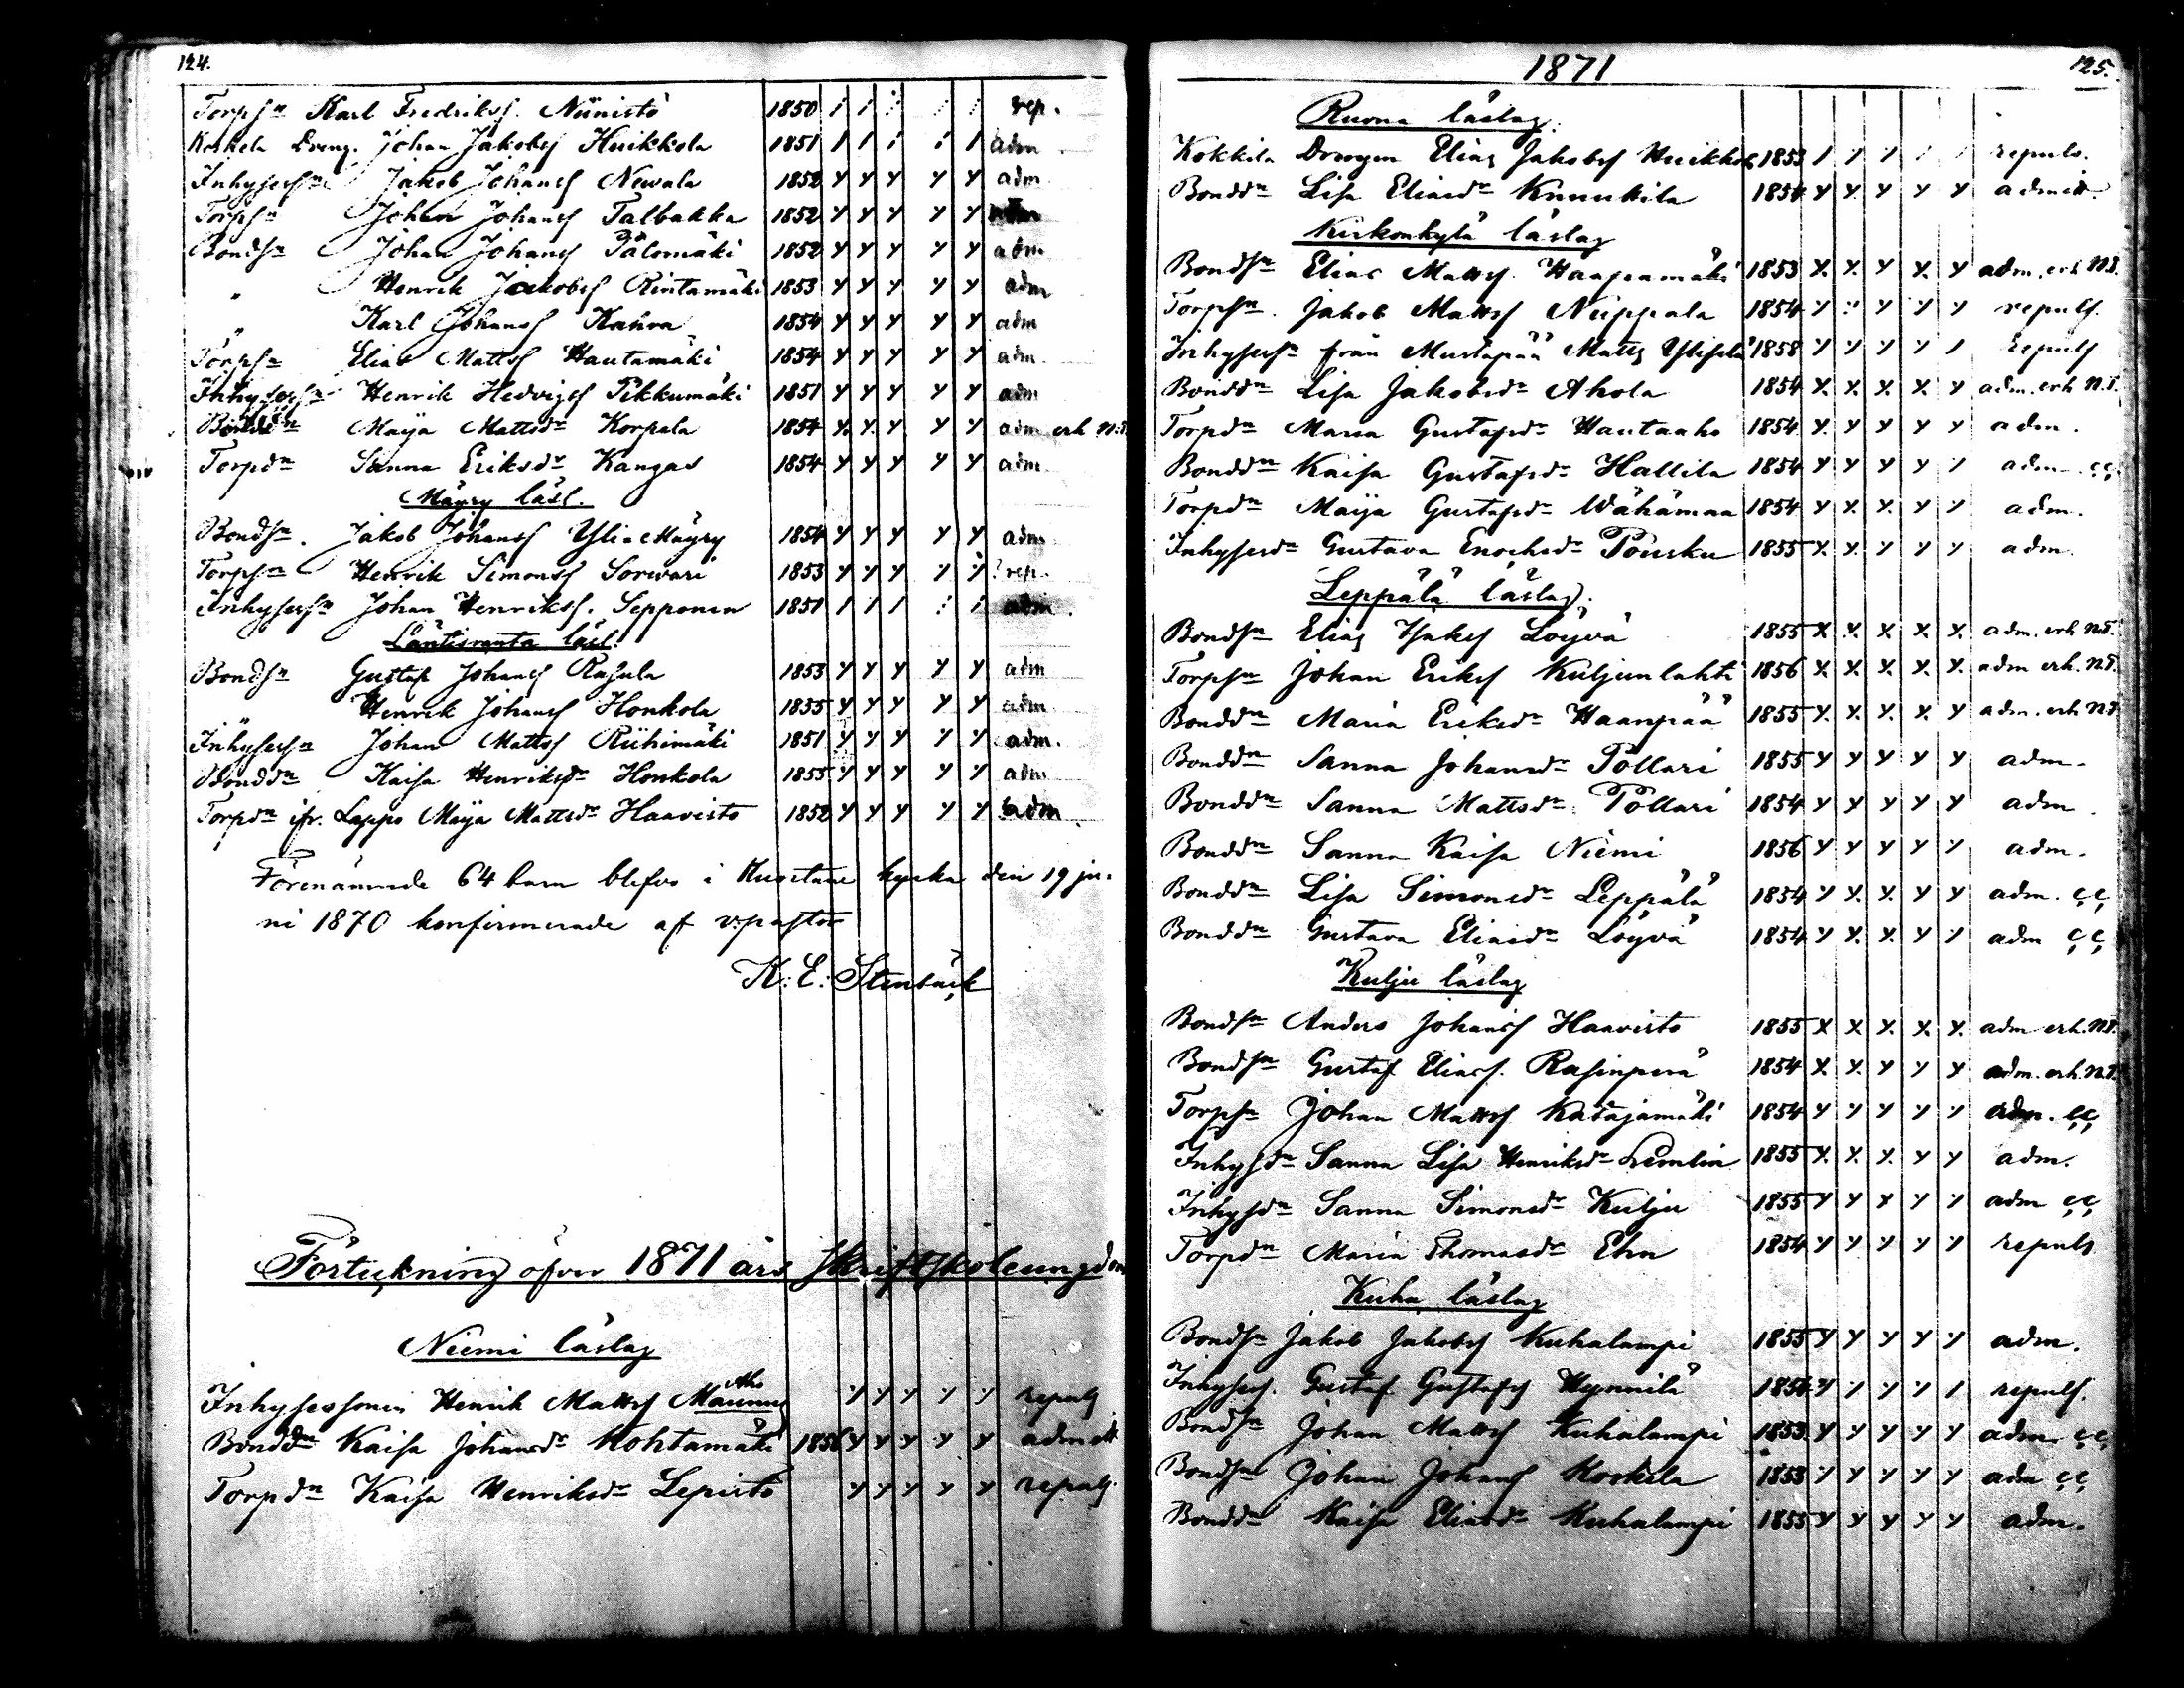 124.
Torpsn Karl Fredriksf. Niinistö 1850 rep.
Koskela Dreng. Johan Jakobsf Huikkola 1851 adm
Inhysessn Jakob Johansf Newala 1852 adm
Torpsn Johan Johansf Talbakka 1852 adm
Bondsn Johan Johansf Palomäki 1852 adm
" Henrik Jakobsf Rintamäki 1853 adm
" Karl Johansf Kahra 1854 adm
Torpsn Elias Mattsf Hautamäki 1854 adm.
Inhysessn Henrik Hedvigsf Pikkumäki 1851 adm
Bonddn Maija Mattsdr Korpela 1854 adm. erh N.T.
Torpdn Sanna Eriksdr Kangas 1854 adm
Mäyry läsl.
Bondsn. Jakob Johansf Yli Mäyry 1854 adm
Torpsn Henrik Simonsf Sorvari 1853 rep.
Inhysessn Johan Henriksf. Sepponen 1851 adm.
Länsiranta läsl.
Bondsn Gustaf Johansf Rasula 1853 adm
Henrik Johansf Honkola 1855 adm
Inhysessn Johan Mattsf Riihimäki 1851 adm.
Bonddn Kaisa Henriksdr Honkola 1855 adm
Torpdn ifr. Lappo Maija Mattsdr Haavisto 1852 adm.
Förenämnde 64 barn blefvo i Kuortane kyrka den 19 ju-
ni 1870 konfirmerade af v:pastor
K: E: Stenbäck
Förteckning öfver 1871 års skriftskoleungdom
Niemi läslag
Aho
Inhysessonen Henrik Mattsf Maunus repuls
Bonddn Kaisa Johansdr Kohtamäki 1856 admitt
Torpdn Kaisa Henriksdr Lepistö repuls.
1871 125.
Ruona läslag.
Kokkila Drengen Elias Jakobsf Huikkola 1853 repuls.
Bonddn Lisa Eliasdr Knuuttila 1854 admitt.
Kirkonkylä läslag
Bondsn Elias Mattsf. Haapamäki 1853 adm. erh N.T.
Torpsn. Jakob Mattsf Nuppala 1854 repuls.
Inhysessn från Mustapää Matts Ylisela 1858 Repuls
Bonddn Lisa Jakobsdr Ahola 1854 adm. erh N.T.
Torpdn Maria Gustafsdr Hautaaho 1854 adm.
Bonddn Kaisa Gustafsdr Hallila 1854 adm. cc
Torpdn Maija Gustafsdr Wähämaa 1854 adm.
Inhysesdr Gustava Enochsdr Pöusku 1855 adm.
Leppälä läslag.
Bondsn Elias Isaksf Löyvä 1855 adm. erh N.T.
Torpsn Johan Eriksf Kuljunlahti 1856 adm erh. N.T.
Bonddn Maria Eriksdr Haanpää 1855 adm. erh N.T.
Bonddn Sanna Johansdr Pollari 1855 adm.
Bonddn Sanna Mattsdr Pollari 1854 adm
Bonddn Sanna Kaisa Niemi 1856 adm.
Bonddn Lisa Simonsdr Leppälä 1854 adm. cc
Bonddn Gustava Eliasdr Löyvä 1854 adm cc
Kulju läslag
Bondsn Anders Johansf Haavisto 1855 adm erh. N.T.
Bondsn Gustaf Eliasf. Rasinperä 1854 adm. erh. N.T.
Torpsn Johan Mattsf Katajamäki 1854 adm. cc
Inhysdn Sanna Lisa Henriksdr Lemlin 1855 adm.
Inhysdn Sanna Simonsdr Kulju 1855 adm cc
Torpdn Maria Thomasdr Ehn 1854 repuls
Kuha läslag
Bondsn Jakob Jakobsf Kuhalampi 1855 adm.
Inhysess. Gustaf Gustafsf Hynnilä 1854 repuls.
Bondsn Johan Mattsf Kuhalampi 1853 adm cc
Bondsn Johan Johansf Koskela 1853 adm cc
Bonddn Kaisa Eliasdr Kuhalampi 1855 adm.